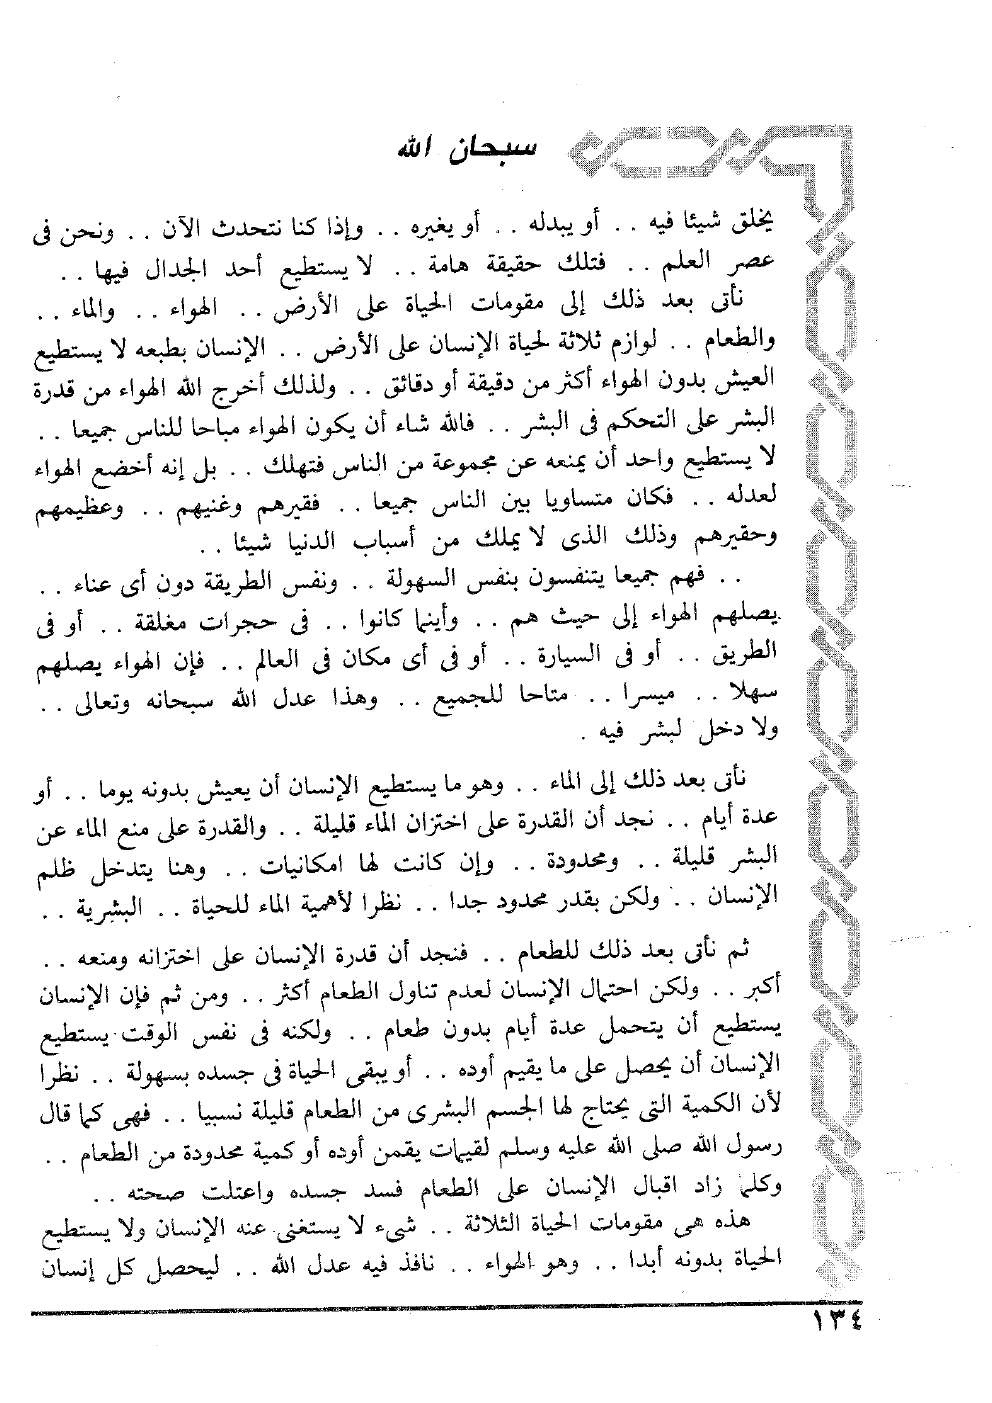 سبحان الله
يخلق شيئا فيه . . أو يبدله . . أو يغيره . . وإذا كنا نتحدث الآن . . ونحن فى
عصر العلم . . فتلك حقيقة هامة . . لا يستطيع أحد الجدال فيها . .
نأتى بعد ذلك إلى مقومات الحياة على الأرض . . الهواء . . والماء . .
والطعام . . لوازم ثلاثة لحياة الإنسان على الأرض . . الإنسان بطبعه لا يستطيع
العيش بدون الهواء أكثر من دقيقة أو دقائق . . ولذلك أخرج الله الهواء من قدرة
البشر على التحكم فى البشر . . فالله شاء أن يكون الهواء مباحا للناس جميعا . .
لا يستطيع واحد أن يمنعه عن مجموعة من الناس فتهلك . . بل إنه أخضع الهواء
لعدله . . فكان متساويا بين الناس جميعا . . فقيرهم وغنيهم . . وعظيمهم
وحقيرهم وذلك الذى لا يملك من أسباب الدنيا شيئا . .
. . فهم جميعا يتنفسون بنفس السهولة . . ونفس الطريقة دون أى عناء . .
يصلهم الهواء إلى حيث هم . . وأينما كانوا . . فى حجرات مغلقة . . أو فى
الطريق . . أو فى السيارة . . أو فى أى مكان فى العالم . . فإن الهواء يصلهم
سهلا . . ميسرا . . متاحا للجميع . . وهذا عدل الله سبحانه وتعالى . .
ولا دخل لبشر فيه .
نأتى بعد ذلك إلى الماء . . وهو ما يستطيع الإنسان أن يعيش بدونه يوما . . أو
عدة أيام . . نجد أن القدرة على اختزان الماء قليلة . . والقدرة على منع الماء عن
البشر قليلة . . ومحدودة . . وإن كانت لها امكانيات . . وهنا يتدخل ظلم
الإنسان . . ولكن بقدر محدود جدا . . نظرا لأهمية الماء للحياة . . البشرية . .
ثم نأتى بعد ذلك للطعام . . فنجد أن قدرة الإنسان على اختزانه ومنعه . .
أكبر . . ولكن احتمال الإنسان لعدم تناول الطعام أكثر . . ومن ثم فإن الإنسان
يستطيع أن يتحمل عدة أيام بدون طعام . . ولكنه فى نفس الوقت يستطيع
الإنسان أن يحصل على ما يقيم أوده . . أو يبقى الحياة فى جسده بسهولة . . نظرا
لأن الكمية التى يحتاج لها الجسم البشرى من الطعام قليلة نسبيا . . فهى كما قال
رسول الله صلى الله عليه وسلم لقيمات يقمن أوده أو كمية محدودة من الطعام . .
وكلما زاد اقبال الإنسان على الطعام فسد جسده واعتلت صحته . .
هذه هى مقومات الحياة الثلاثة . . شىء لا يستغنى عنه الإنسان ولا يستطيع
الحياة بدونه أبدا . . وهو الهواء . . نافذ فيه عدل الله . . ليحصل كل إنسان
١٣٤